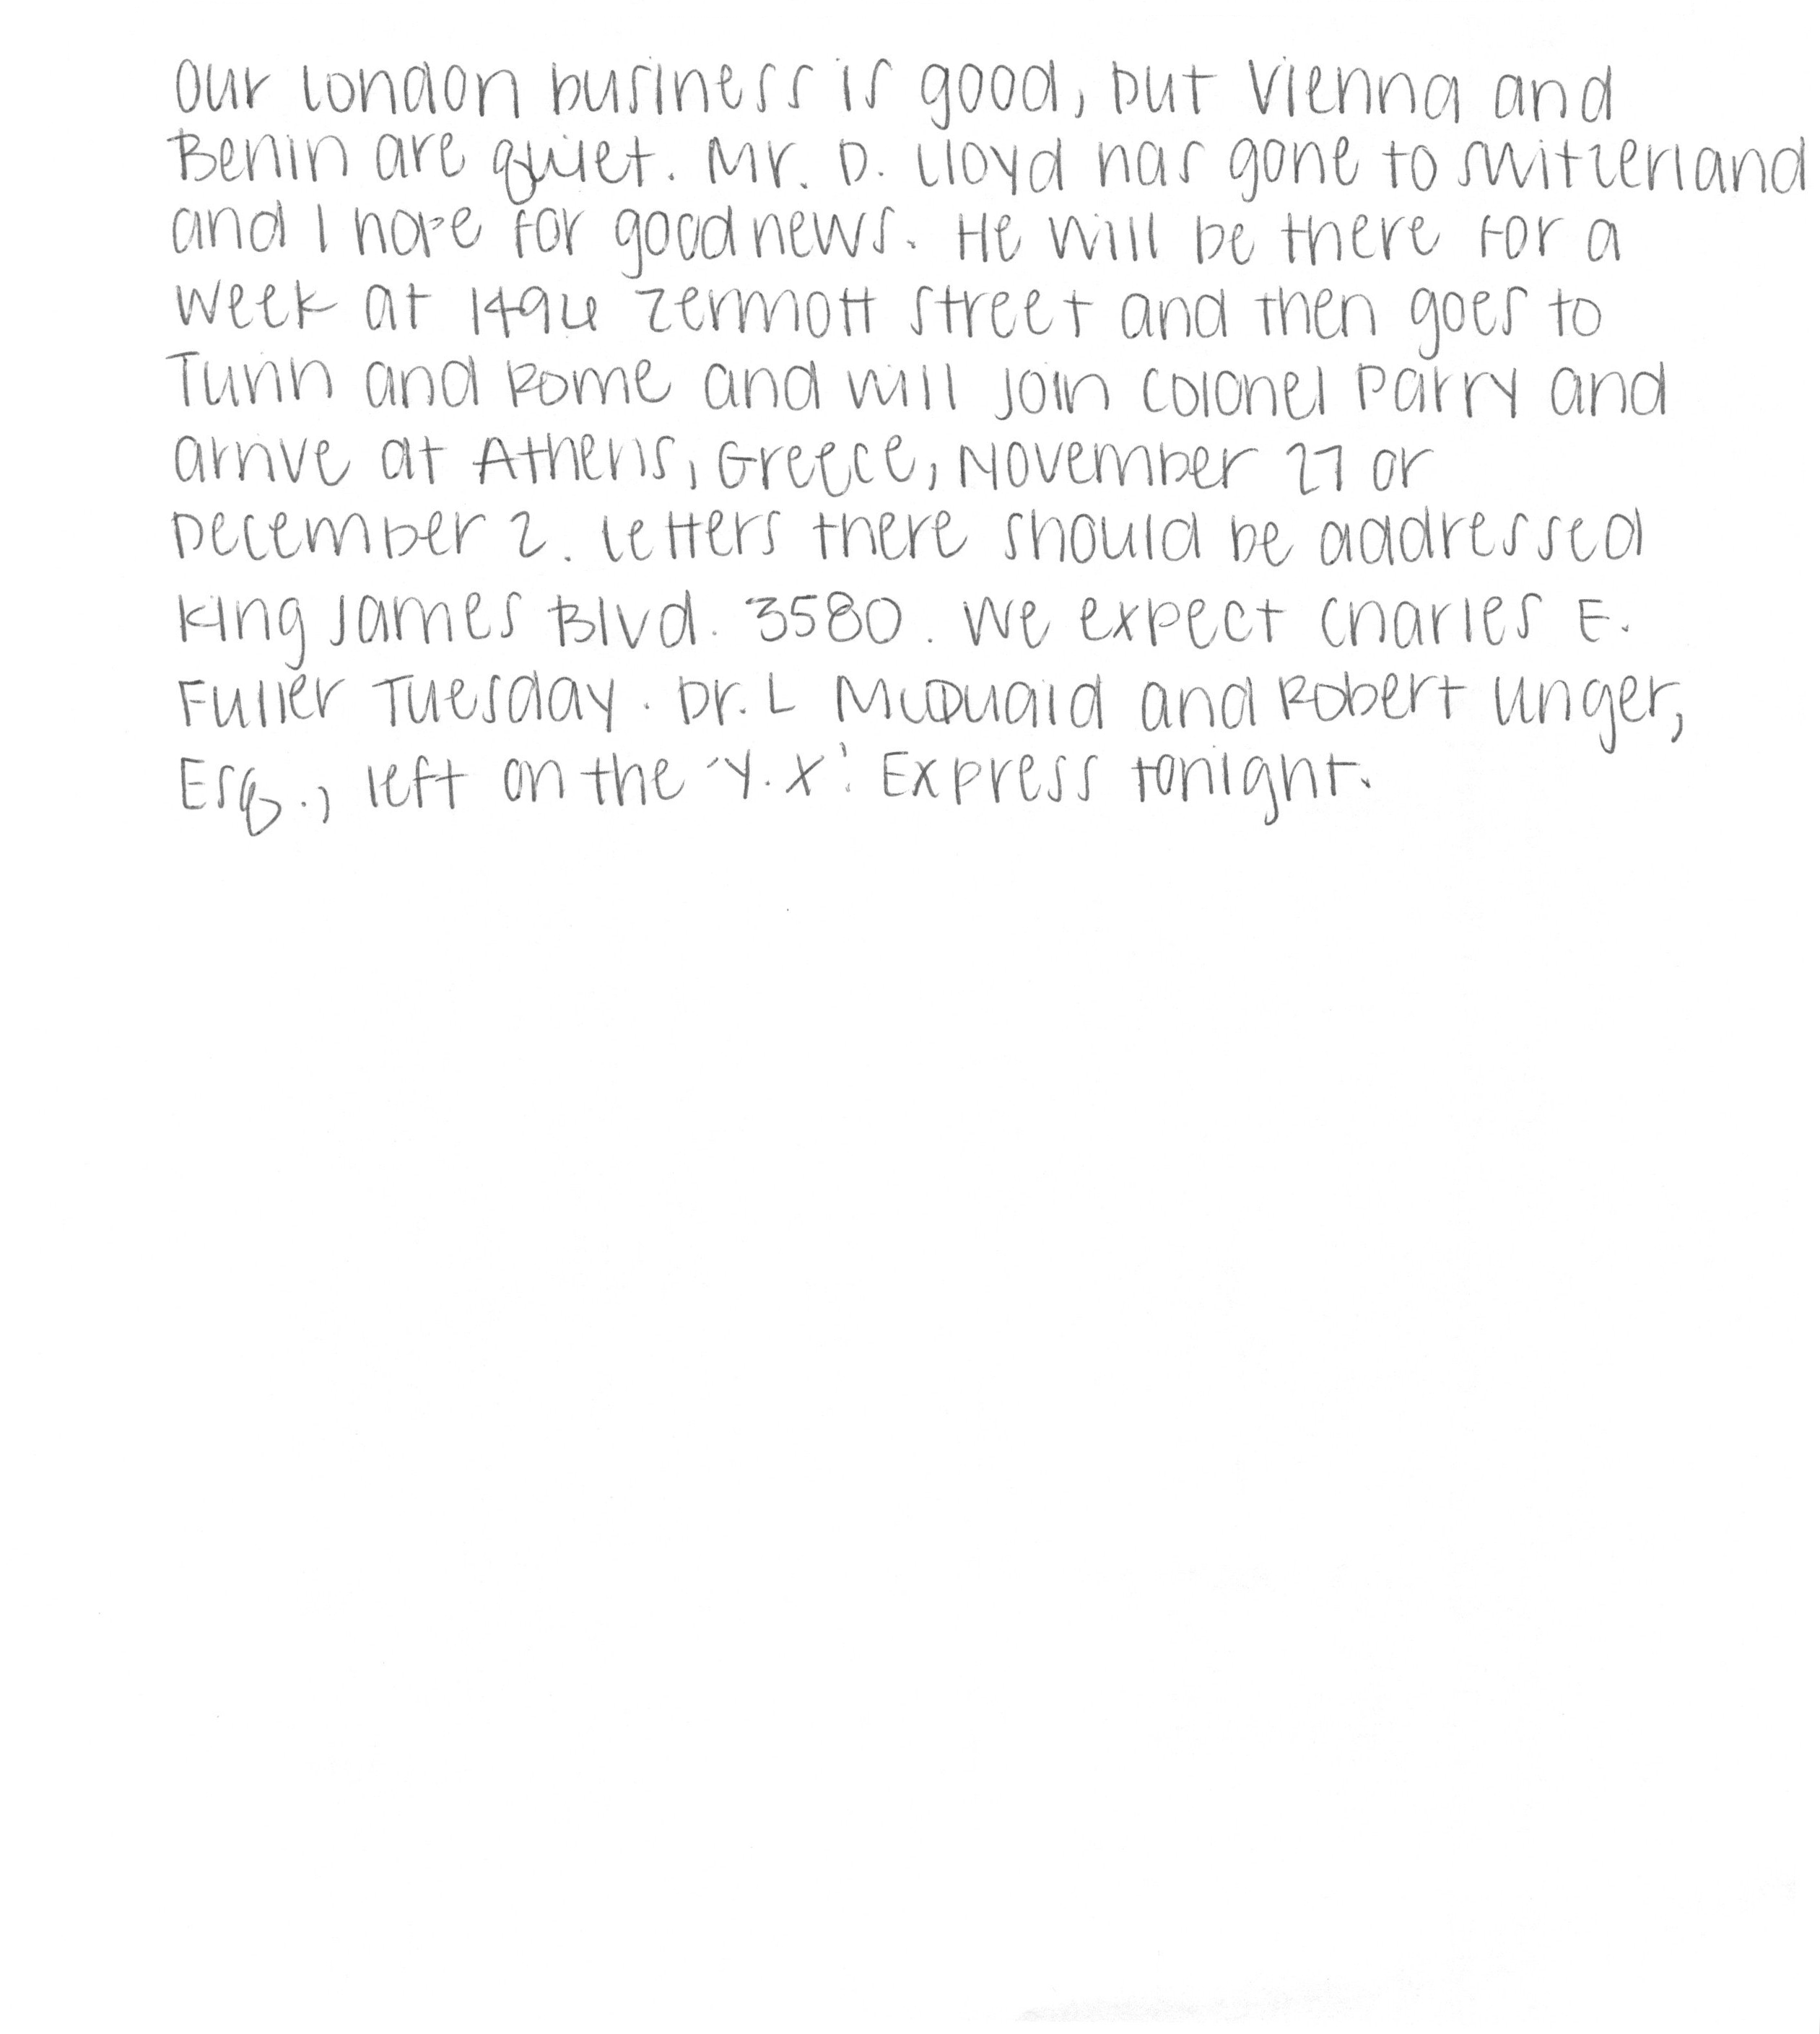 Our London business is good, but Vienna and
Benin are quiet. Mr. D. Lloyd has gone to Switzerland
and I hope for good news. He will be there for a
week at 1494 Zermott Street and then goes to
Turin and Rome and will join Colonel Parry and
arrive at Athens, Greece, November 27 or
December 2. Letters there should be addressed
King James Blvd. 3580. We expect Charles E.
Fuller Tuesday. Dr. L McQuaid and Robert Unger,
Esq., left on the 'Y.X.' Express tonight.